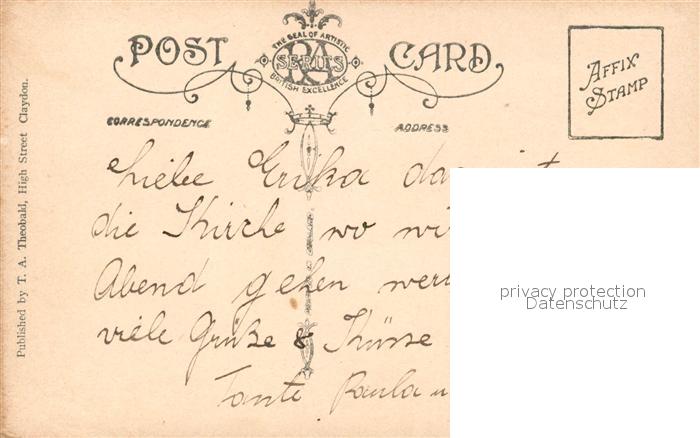 POST CARD
THE SEAL OF ARTISTIC
RA
SERIES
BRITISH EXCELLENCE
AFFIX
STAMP
CORRESPONDENCE
ADDRESS
Published by T. A. Theobald, High Street Claydon.
Liebe Erika das ist
die Kirche wo wi
Abend gehen werd
viele Grüße & Küsse
Tante Paula u
privacy protection
Datenschutz